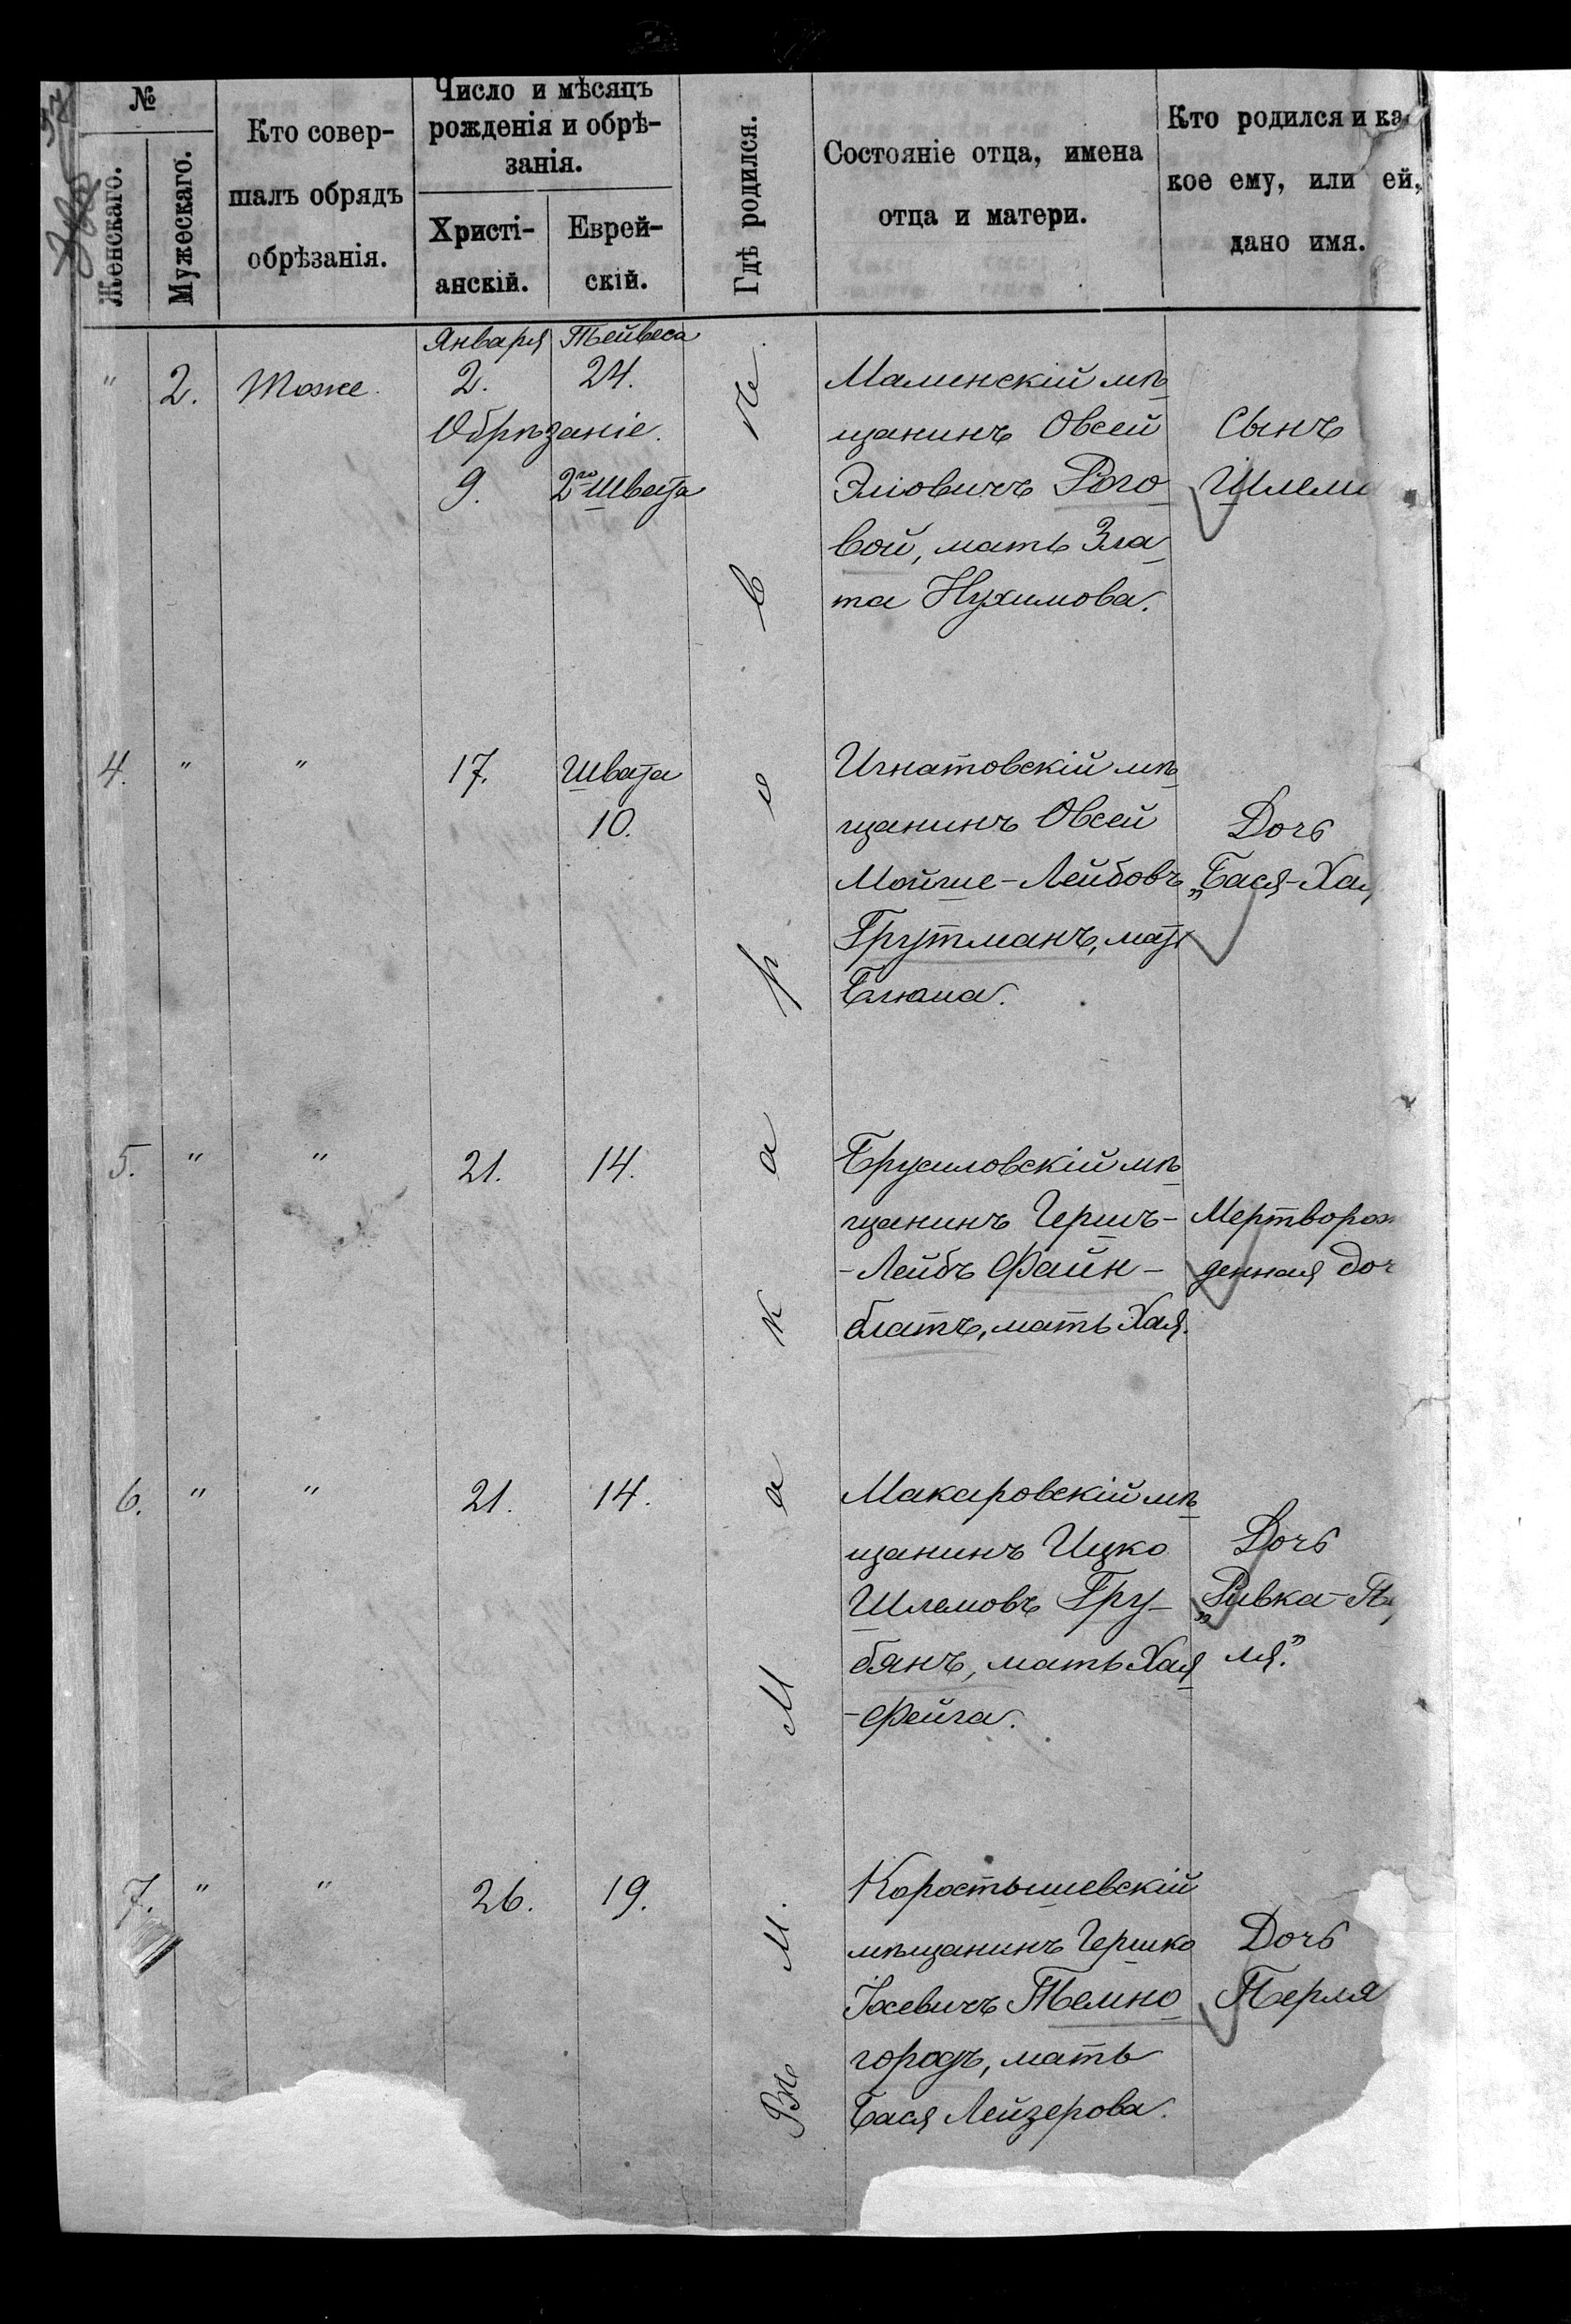 №
Женскаго.
Мужескаго.
Кто совер-
шалъ обрядъ
обрѣзанія.
Число и мѣсяцъ
рожденія и обрѣ-
занія.
Христі-
анскій.
Еврей-
скій.
Гдѣ родился.
Состояніе отца, имена
отца и матери.
Кто родился и ка
кое ему, или ей,
дано имя.
Января Тейвеса
" 2. Тоже. 2. 24.
Обрѣзаніе.
9. 2го Швата
Малинскій мѣ
щанинъ Овсей
Эліовичъ Рого
вой, мать Зла
та Нухимова.
Сынъ
Шлеми
4. " " 17. Швата
10.
Игнатовскій мѣ
щанинъ Овсей
Мойше-Лейбовъ
Грутманъ, мать
Блюма.
Дочь
„Бася-Хая
5. " " 21. 14.
Брусиловскій мѣ
щанинъ Гершъ-
-Лейбъ Файн-
блатъ, мать Хая.
Мертворож
денная доч
6. " " 21. 14.
Макаровскій мѣ
щанинъ Ицко
Шлемовъ Гру-
бянъ, мать Хая
-Фейга.
Дочь
„Ривка-Пе
ля."
7. " " 26. 19.
Коростышевскій
мѣщанинъ Гершко
Іосевичъ Темно
городъ, мать
Бася Лейзерова.
Дочь
Перля
Въ м. Макаровѣ